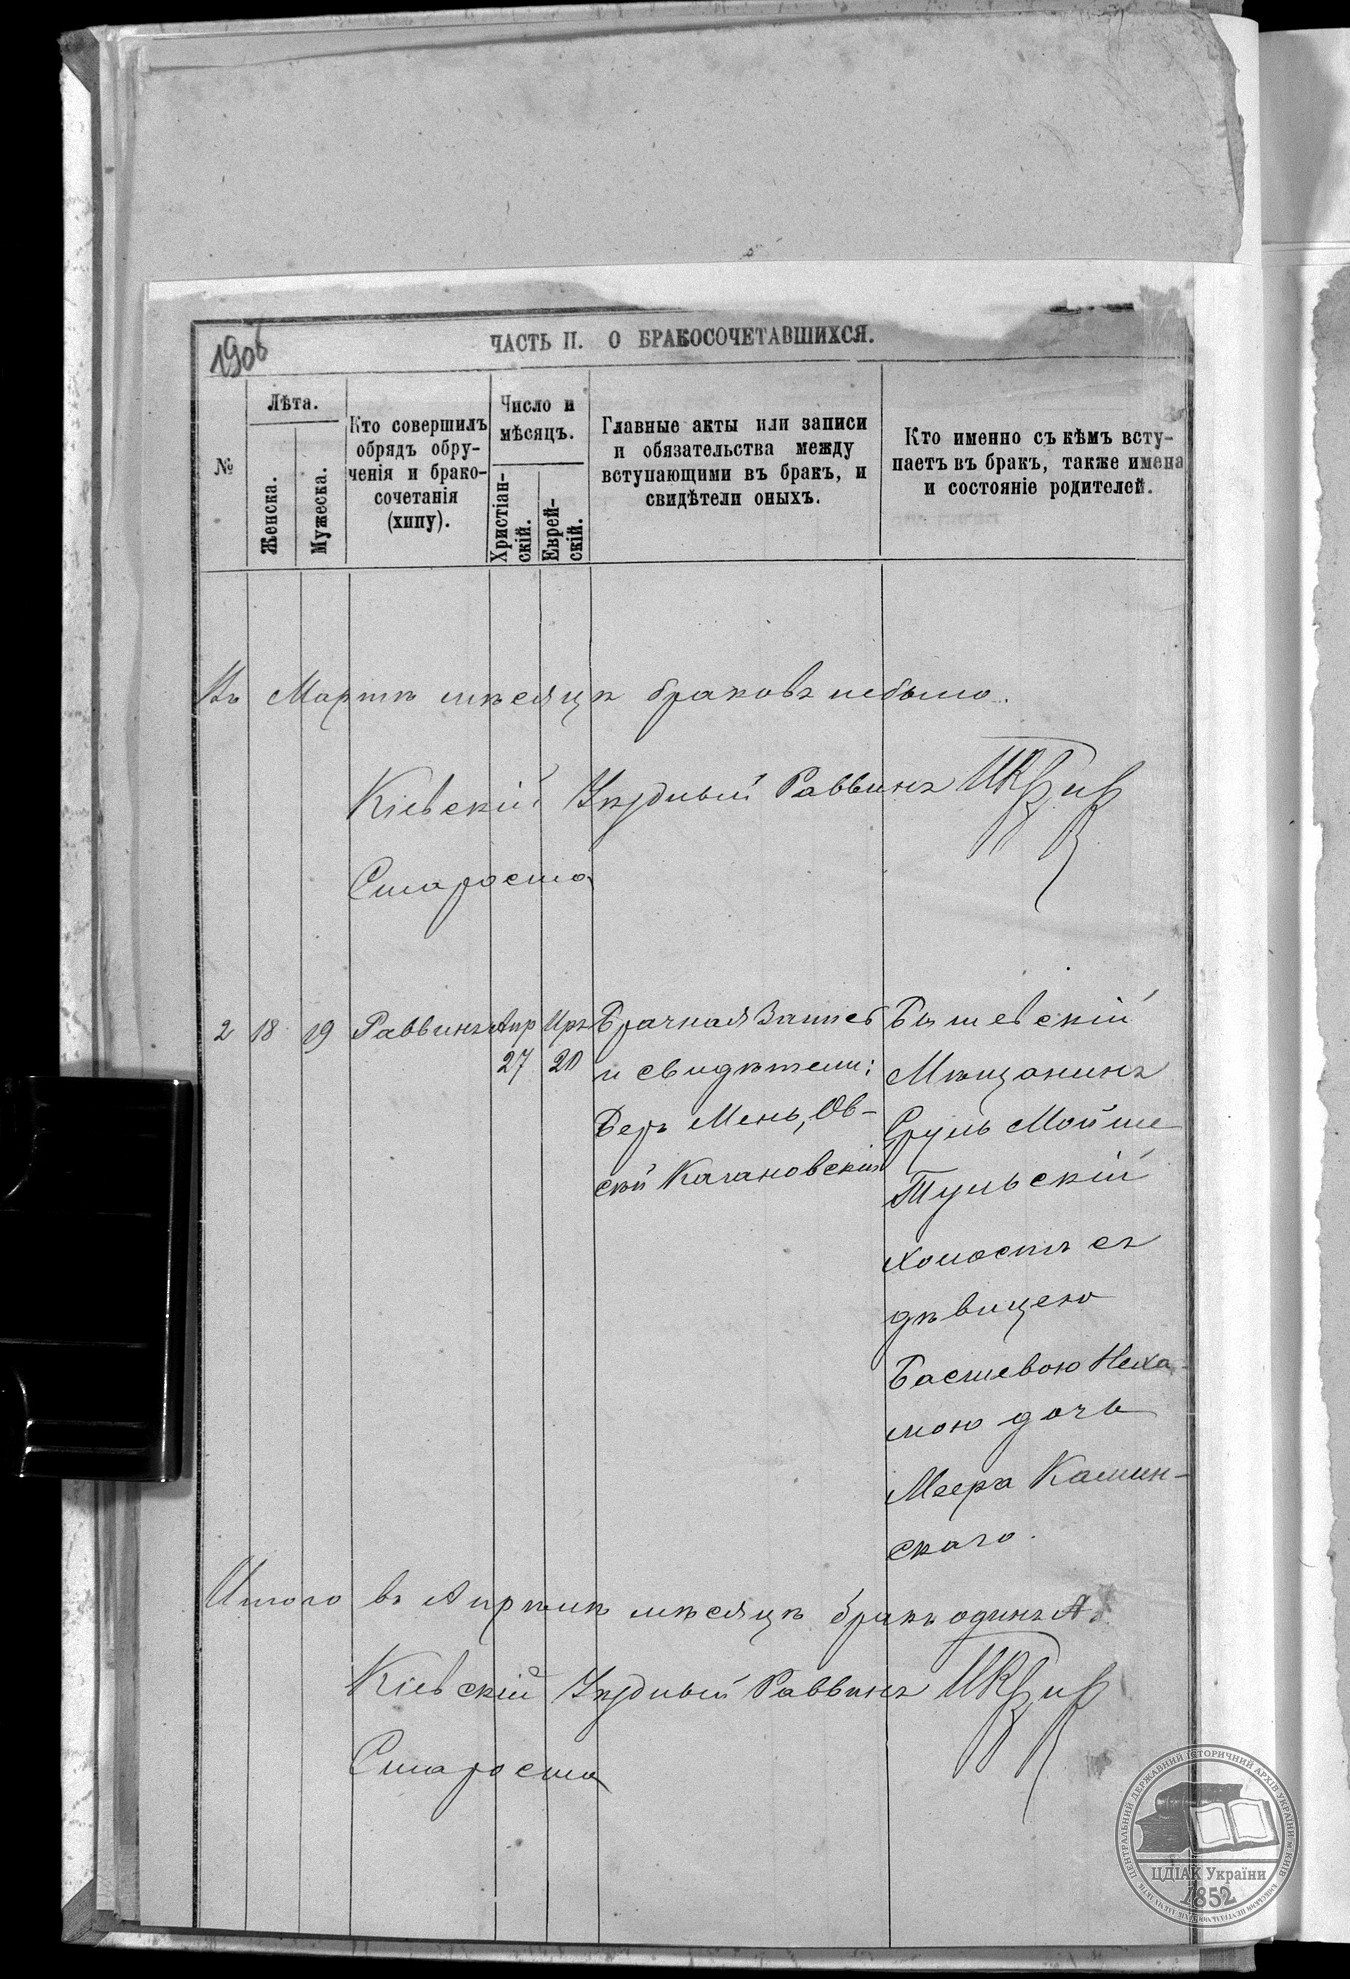 1906
ЧАСТЬ II. О БРАКОСОЧЕТАВШИХСЯ.
№
Лѣта.
Женска.
Мужеска.
Кто совершилъ
обрядъ обру-
ченія и брако-
сочетанія
(хипу).
Число и
мѣсяцъ.
Христіан-
скій.
Еврей-
скій.
Главные акты или записи
и обязательства между
вступающими въ бракъ, и
свидѣтели оныхъ.
Кто именно съ кѣмъ всту-
паетъ въ бракъ, также имена
и состояніе родителей.
Въ Мартѣ мѣсяцѣ браковъ небыло.
Кіевскій Уѣздный Раввинъ
Староста
2 18 19 Раввинъ
Апр
27
Иръ
20
Брачная Запись
и свидѣтели:
Беръ Мень, Ов-
сѣй Кагановскій
Бышевскій
Мѣщанинъ
Сруль Мойше
Тульскій
холостъ съ
дѣвицею
Басшевою Неха-
мою дочь
Меера Камин-
скаго.
Итого въ Апрѣлѣ мѣсяцѣ бракъ одинъ А.
Кіевскій Уѣздный Раввинъ
Староста
ЦЕНТРАЛЬНИЙ ДЕРЖАВНИЙ ІСТОРИЧНИЙ АРХІВ УКРАЇНИ м КИЇВ
ЦДІАК України
1852